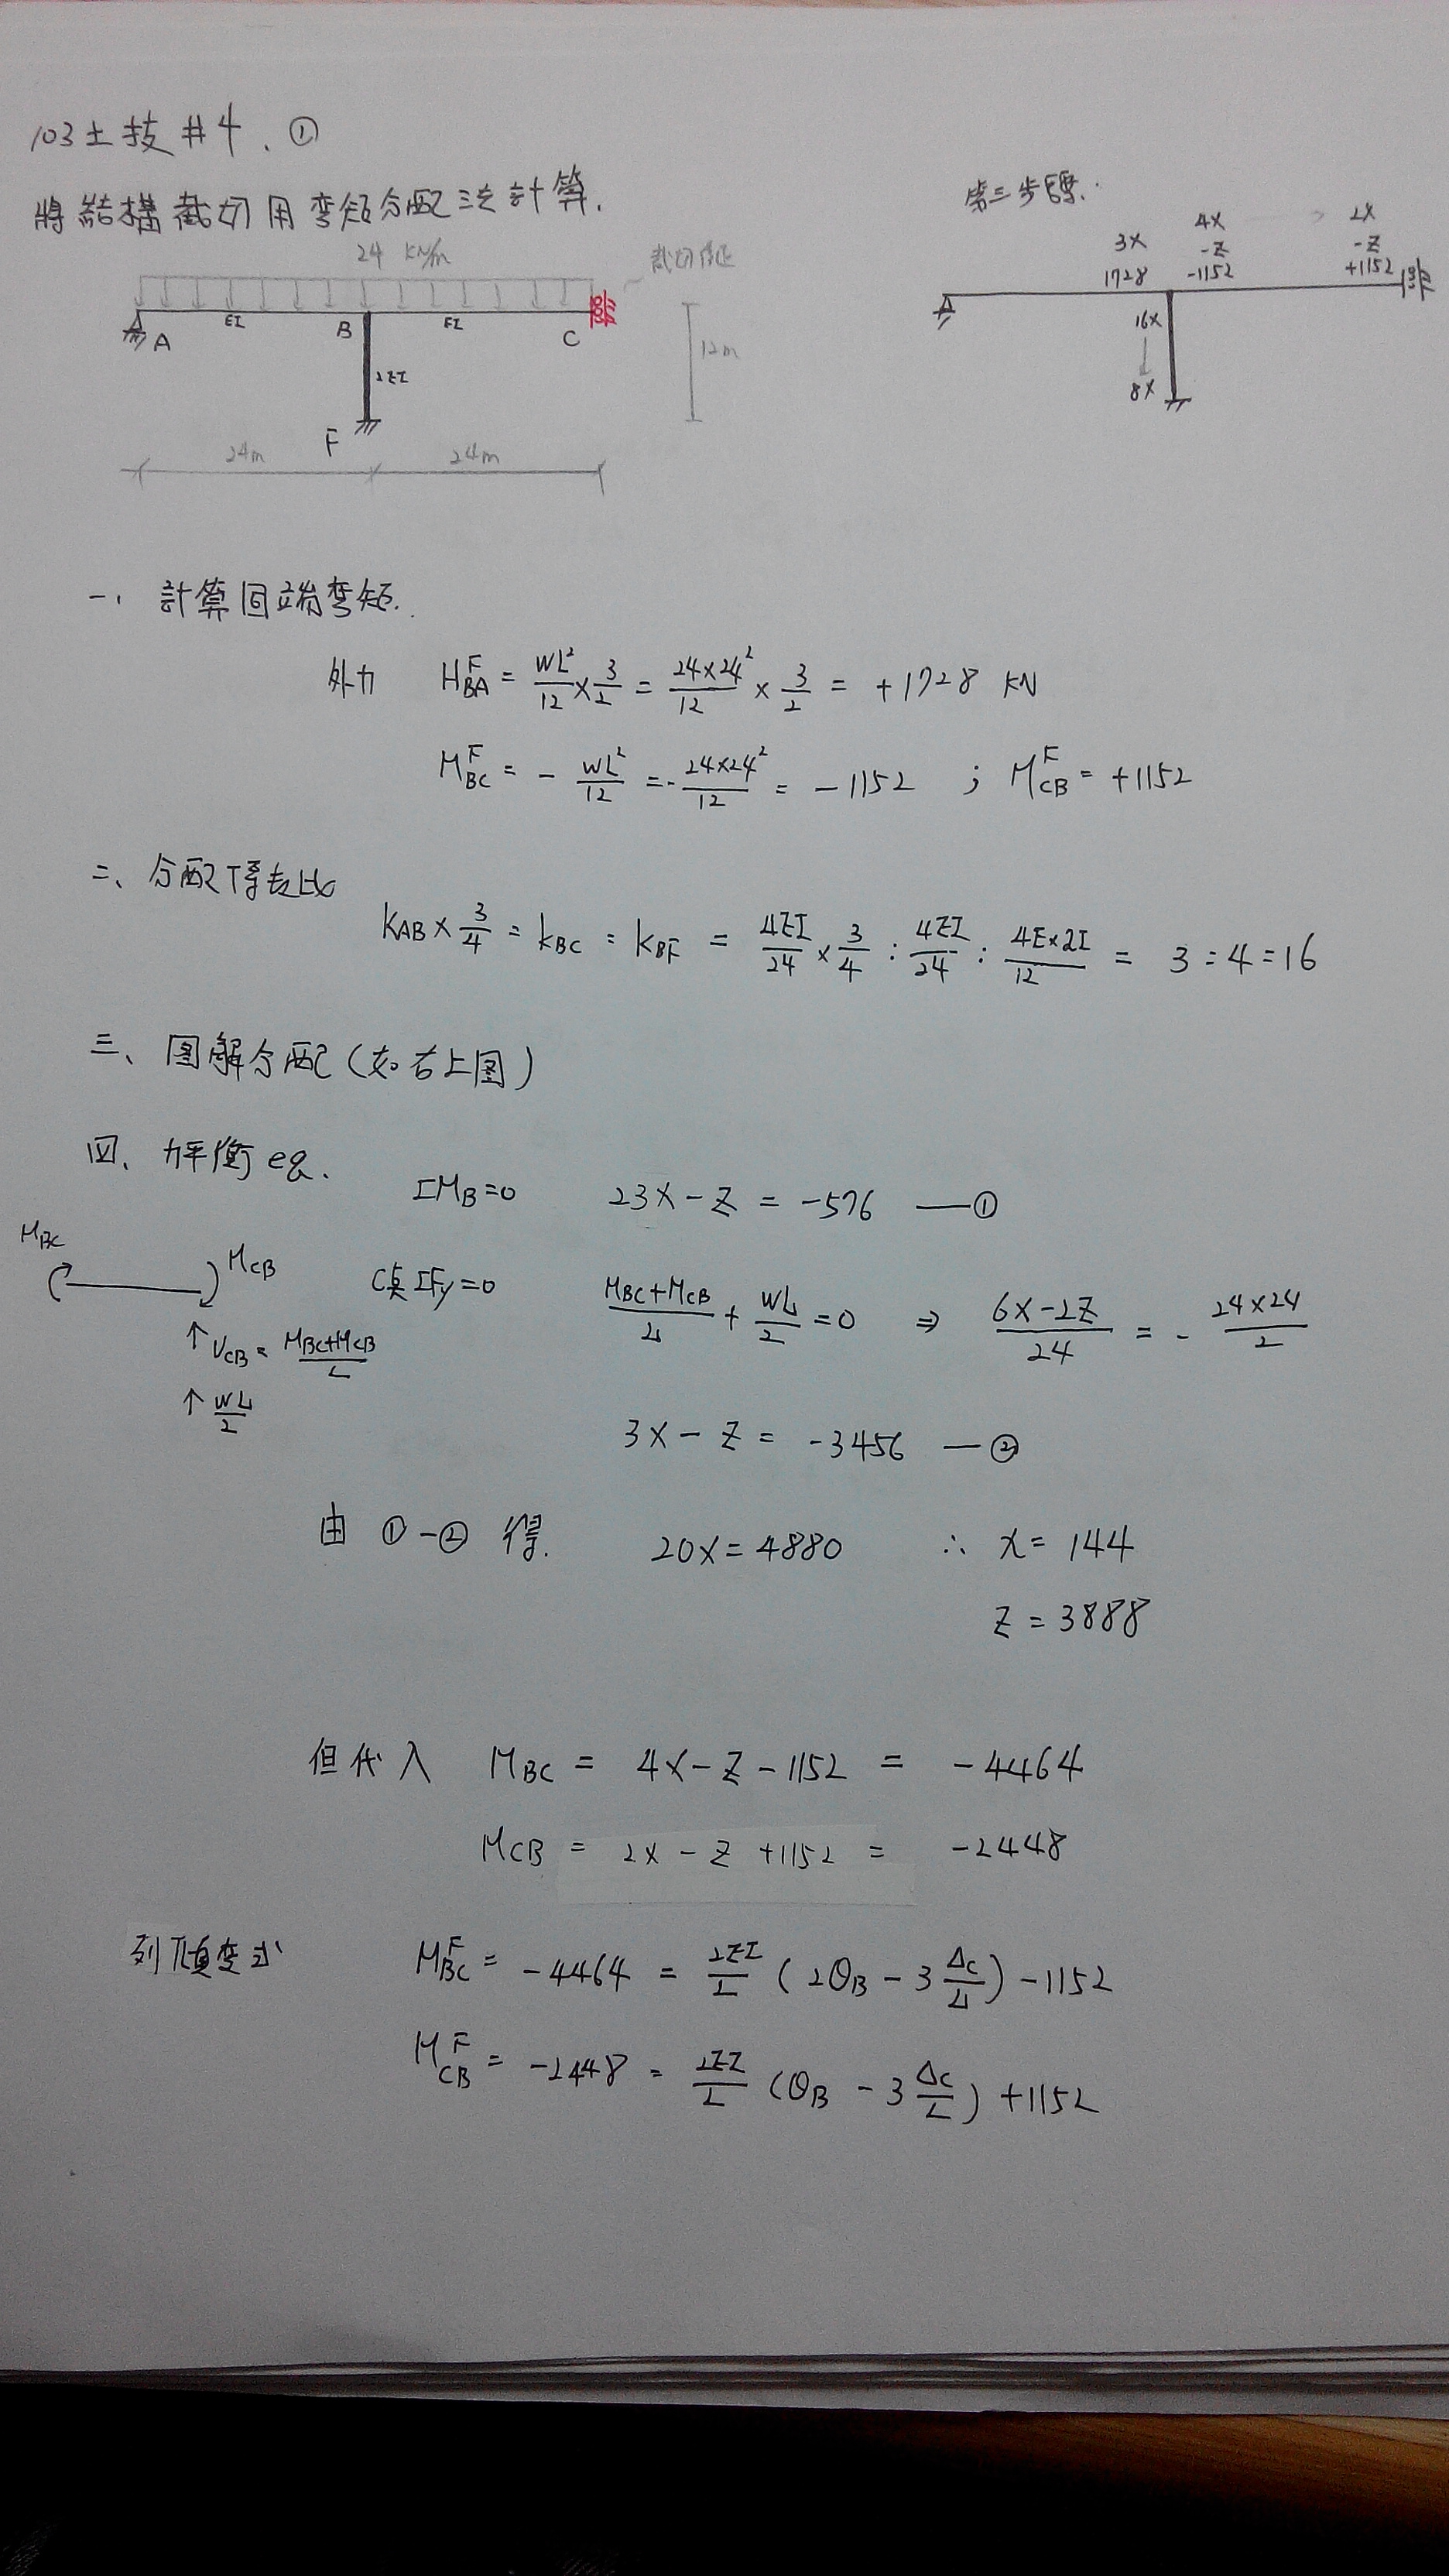 103土技 #4. ①
將結構截切用弯矩分配法計算.
24 KN/m
截切修正
A
EI
B
EI
C
2EI
12m
F
24m
24m
第三步驟.
3X
4X
2X
-Z
-Z
1728
-1152
+1152
16X
8X
一. 計算固端弯矩.
外力 M^F_BA = WL²/12 × 3/2 = 24×24²/12 × 3/2 = +1728 KN
M^F_BC = - WL²/12 = - 24×24²/12 = -1152 ; M^F_CB = +1152
二、分配係數比
K_AB × 3/4 : K_BC : K_BF = 4EI/24 × 3/4 : 4EI/24 : 4E×2I/12 = 3 : 4 : 16
三、図解分配(如右上図)
四、力平衡 eq.
ΣM_B=0 23X - Z = -576 —①
M_BC
M_CB
C點 ΣFy=0 (M_BC+M_CB)/L + WL/2 = 0 ⇒ (6X-2Z)/24 = - 24×24/2
↑ V_CB = (M_BC+M_CB)/L
↑ WL/2
3X - Z = -3456 —②
由 ①-② 得. 20X = 4880 ∴ X = 144
Z = 3888
但代入 M_BC = 4X-Z-1152 = -4464
M_CB = 2X-Z+1152 = -2448
列傾变式 M^F_BC = -4464 = 2EI/L (2θ_B - 3 Δc/L) -1152
M^F_CB = -2448 = 2EI/L (θ_B - 3 Δc/L) +1152